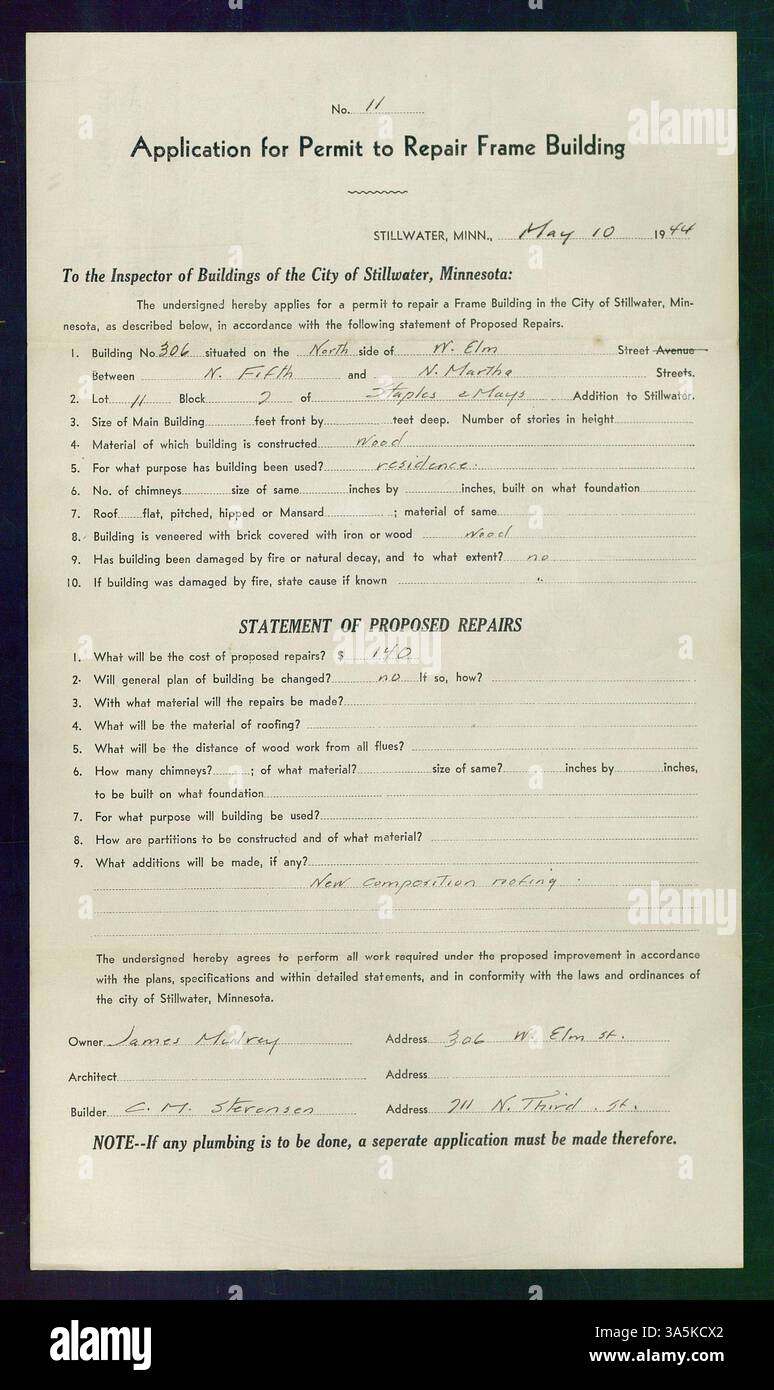 No. 11
Application for Permit to Repair Frame Building
STILLWATER, MINN., May 10 1944
To the Inspector of Buildings of the City of Stillwater, Minnesota:
The undersigned hereby applies for a permit to repair a Frame Building in the City of Stillwater, Min-
nesota, as described below, in accordance with the following statement of Proposed Repairs.
1. Building No. 306 situated on the North side of W. Elm Street Avenue
Between N. Fifth and N. Martha Streets.
2. Lot 11 Block 2 of Staples & Mays Addition to Stillwater.
3. Size of Main Building feet front by feet deep. Number of stories in height
4. Material of which building is constructed Wood
5. For what purpose has building been used? residence.
6. No. of chimneys size of same inches by inches, built on what foundation
7. Roof flat, pitched, hipped or Mansard ; material of same
8. Building is veneered with brick covered with iron or wood Wood
9. Has building been damaged by fire or natural decay, and to what extent? no
10. If building was damaged by fire, state cause if known "
STATEMENT OF PROPOSED REPAIRS
1. What will be the cost of proposed repairs? $ 140
2. Will general plan of building be changed? no If so, how?
3. With what material will the repairs be made?
4. What will be the material of roofing?
5. What will be the distance of wood work from all flues?
6. How many chimneys? ; of what material? size of same? inches by inches,
to be built on what foundation
7. For what purpose will building be used?
8. How are partitions to be constructed and of what material?
9. What additions will be made, if any?
New composition roofing.
The undersigned hereby agrees to perform all work required under the proposed improvement in accordance
with the plans, specifications and within detailed statements, and in conformity with the laws and ordinances of
the city of Stillwater, Minnesota.
Owner James Mulvey Address 306 W. Elm st.
Architect Address
Builder C. M. Stevensen Address 711 N. Third. st.
NOTE--If any plumbing is to be done, a seperate application must be made therefore.
alamy
Image ID: 3A5KCX2
www.alamy.com